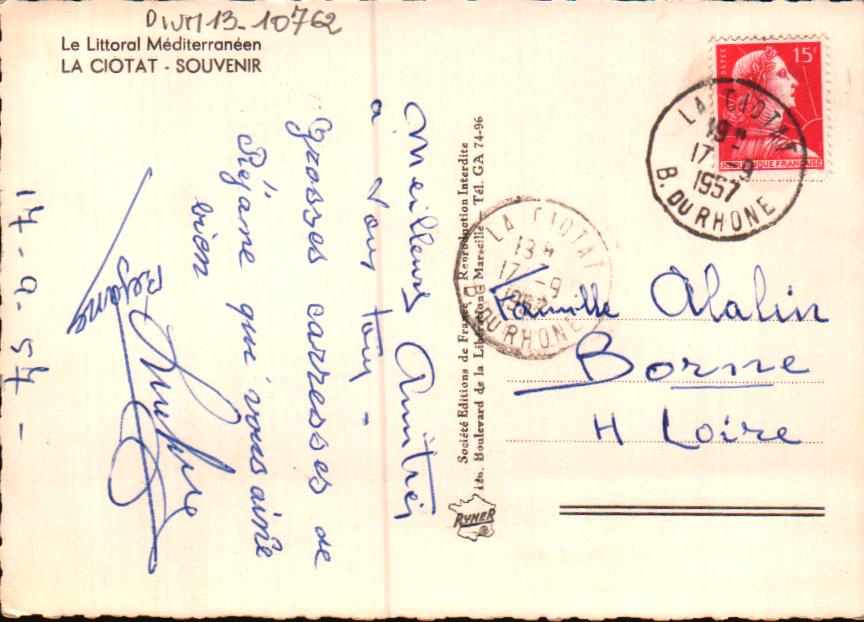 DIVM13-10762
Le Littoral Méditerranéen
LA CIOTAT - SOUVENIR
Meilleures Amitiés
a vous tous -
grosses carresses de
Réjane qui vous aime
bien
Réjane
14-9-57-
Société Editions de France - Reproduction Interdite
126, Boulevard de la Libération - Marseille - Tél. GA 74-96
RYNER
POSTES
15F
REPUBLIQUE FRANÇAISE
LA CIOTAT
19H
17-9
1957
B. DU RHONE
LA CIOTAT
19H
17-9
1957
B. DU RHONE
Famille Alalin
Borne
H Loire